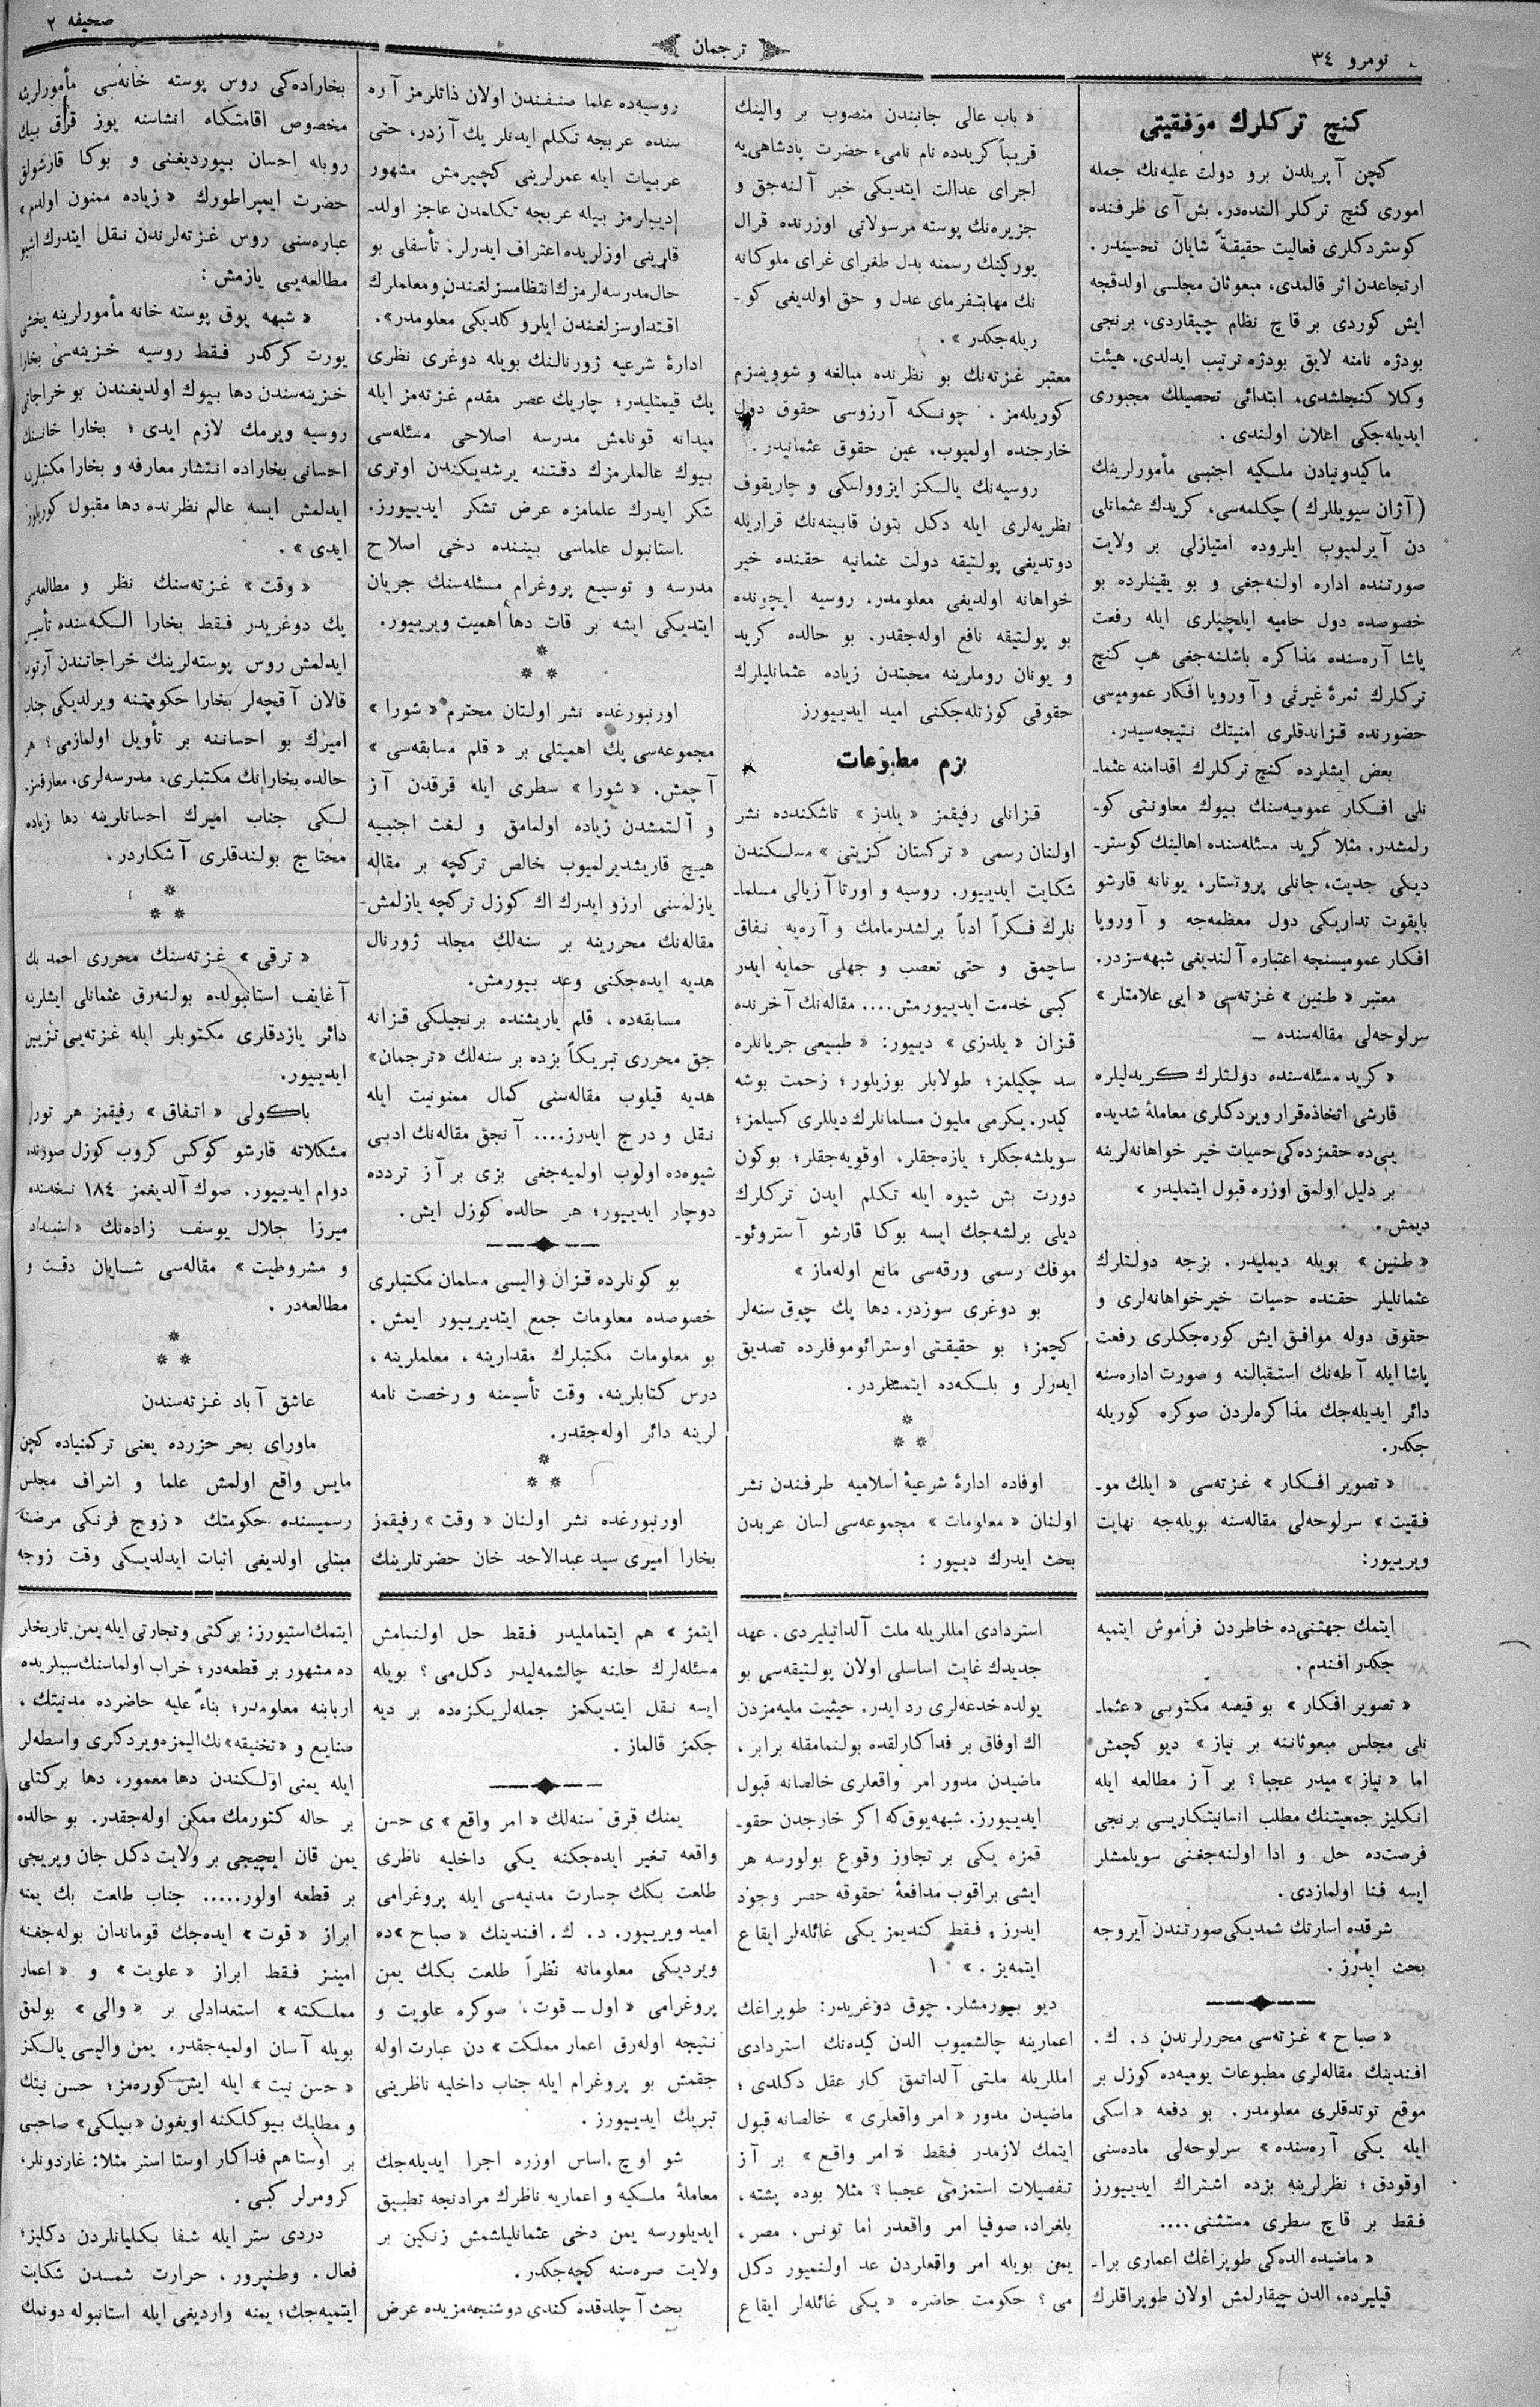 صحیفه ٢
ترجمان
نومرو ٣٤
كنچ تركلرك موفقیتی
كچن آپریلدن برو دولت علیه‌نك جمله
اموری كنچ تركلر النده‌در. بش آی ظرفنده
كوستردكلری فعالیت حقیقةً شایان تحسیندر.
ارتجاعدن اثر قالمدی، مبعوثان مجلسی اولدقجه
ایش كوردی برقاچ نظام چیقاردی، برنجی
بودژه نامنه لایق بودژه ترتیب ایدلدی. هیئت
وكلا كنجلشدی، ابتدائی تحصیلك مجبوری
ایدیله‌جكی اعلان اولندی.
ماكیدونیادن ملكیه اجنبی مأمورلرینك
(آژان سیویللرك) چكلمه‌سی، كریدك عثمانلی
دن آیرلمیوب ایلروده امتیازلی بر ولایت
صورتنده اداره اولنه‌جغی و بو یقینلرده بو
خصوصده دول حامیه ایلچیلری ایله رفعت
پاشا آره‌سنده مذاكره باشلنه‌جغی هپ كنچ
تركلرك ثمرهٔ غیرتی و آوروپا افكار عمومیسی
حضورنده قزاندقلری امنیتك نتیجه‌سیدر.
بعض ایشلرده كنچ تركلرك اقدامنه عثمـ
نلی افكار عمومیه‌سنك بیوك معاونتی كو-
رلمشدر. مثلا كرید مسئله‌سنده اهالینك كوستر-
دیكی جدیت، جانلی پروتستار، یونانه قارشو
بایقوت تداریكی دول معظمه‌جه و آوروپا
افكار عمومیسنجه اعتباره آلندیغی شبهه‌سزدر.
معتبر «طنین» غزته‌سی «ایی علامتلر»
سرلوحه‌لی مقاله‌سنده —
«كرید مسئله‌سنده دولتلرك كریدلیلره
قارشی اتخاذه قرار ویردكلری معاملهٔ شدیده
یی‌ده حقمزده‌كی حسیات خیر خواهانه‌لرینه
بر دلیل اولمق اوزره قبول ایتملیدر»
دیمش.
«طنین» بویله دیملیدر. بزجه دولتلرك
عثمانلیلر حقنده حسیات خیرخواهانه‌لری و
حقوق دوله موافق ایش كوره‌جكلری رفعت
پاشا ایله آطه‌نك استقبالنه و صورت اداره‌سنه
دائر ایدیله‌جك مذاكره‌لردن صوكره كوریله
جكدر.
«تصویر افكار» غزته‌سی «ایلك مو-
فقیت» سرلوحه‌لی مقاله‌سنه بویله‌جه نهایت
ویرییور:
«باب عالی جانبندن منصوب بر والینك
قریباً كریدده نام نامیء حضرت پادشاهی‌یه
اجرای عدالت ایتدیكی خبر آلنه‌جق و
جزیره‌نك پوسته مرسولاتی اوزرنده قرال
یوركینك رسمنه بدل طغرای غرای ملوكانه
نك مهابتفرمای عدل و حق اولدیغی كو-
ریله‌جكدر».
معتبر غزته‌نك بو نظرنده مبالغه و شووینزم
كوریله‌مز. چونكه آرزوسی حقوق دول
خارجنده اولمیوب، عین حقوق عثمانیدر.
روسیه‌نك یالكز ایزوولسكی و چاریقوف
نظریه‌لری ایله دكل بتون قابینه‌نك قراریله
دوتدیغی پولتیقه دولت عثمانیه حقنده خیر
خواهانه اولدیغی معلومدر. روسیه ایچونده
بو پولتیقه نافع اوله‌جقدر. بو حالده كرید
و یونان روملرینه محبتدن زیاده عثمانلیلرك
حقوقی كوزتله‌جكنی امید ایدییورز
بزم مطبوعات
قزانلی رفیقمز «یلدز» تاشكندده نشر
اولنان رسمی «تركستان كزیتی» مسلكندن
شكایت ایدییور. روسیه و اورتا آزیالی مسلما-
نلرك فكراً ادباً برلشدرمامك و آره‌یه نفاق
ساچمق و حتی تعصب و جهلی حمایه ایدر
كبی خدمت ایدییورمش.... مقاله‌نك آخرنده
قزان «یلدزی» دییور: «طبیعی جریانلره
سد چكیلمز؛ طولابلر بوزیلور؛ زحمت بوشه
كیدر. یكرمی ملیون مسلمانلرك دیللری كسیلمز؛
سویلشه‌جكلر؛ یازه‌جقلر، اوقویه‌جقلر؛ بوكون
دورت بش شیوه ایله تكلم ایدن تركلرك
دیلی برلشه‌جك ایسه بوكا قارشو آستروئو-
موفك رسمی ورقه‌سی مانع اوله‌ماز»
بو دوغری سوزدر. دها پك چوق سنه‌لر
كچمز؛ بو حقیقتی اوسترائوموفلرده تصدیق
ایدرلر و بلكه‌ده ایتمشلردر.
اوفاده ادارهٔ شرعیهٔ اسلامیه طرفندن نشر
اولنان «معلومات» مجموعه‌سی لسان عربدن
بحث ایدرك دییور:
روسیه‌ده علما صنفندن اولان ذاتلرمز آره
سنده عربجه تكلم ایدنلر پك آزدر، حتی
عربیات ایله عمرلرینی كچیرمش مشهور
ادیبلرمز بیله عربجه تكلمدن عاجز اولد-
قلرینی اوزلریده اعتراف ایدرلر. تأسفلی بو
حال مدرسه‌لرمزك انتظامسزلغندن و معلملرك
اقتدارسزلغندن ایلرو كلدیكی معلومدر».
ادارهٔ شرعیه ژورنالنك بویله دوغری نظری
پك قیمتلیدر؛ چاریك عصر مقدم غزته‌مز ایله
میدانه قونلمش مدرسه اصلاحی مسئله‌سی
بیوك عالملرمزك دقتنه یرشدیكندن اوتری
شكر ایدرك علمامزه عرض تشكر ایدییورز.
استانبول علماسی بیننده دخی اصلاح
مدرسه و توسیع پروغرام مسئله‌سنك جریان
ایتدیكی ایشه بر قات دها اهمیت ویرییور.
اورنبورغده نشر اولنان محترم «شورا»
مجموعه‌سی پك اهمیتلی بر «قلم مسابقه‌سی»
آچمش. «شورا» سطری ایله قرقدن آز
و آلتمشدن زیاده اولمامق و لغت اجنبیه
هیچ قاریشدیرلمیوب خالص تركچه بر مقاله
یازلمسنی ارزو ایدرك اك كوزل تركچه یازلمش
مقاله‌نك محررینه بر سنه‌لك مجلد ژورنال
هدیه ایده‌جكنی وعد بیورمش.
مسابقه‌ده، قلم یاریشنده برنجیلكی قزانه
جق محرری تبریكاً بزده بر سنه‌لك «ترجمان»
هدیه قیلوب مقاله‌سنی كمال ممنونیت ایله
نقل و درج ایدرز.... آنجق مقاله‌نك ادبی
شیوه‌ده اولوب اولمیه‌جغی بزی بر آز تردده
دوچار ایدییور؛ هر حالده كوزل ایش.
بو كونلرده قزان والیسی مسلمان مكتبلری
خصوصده معلومات جمع ایتدیرییور ایمش.
بو معلومات مكتبلرك مقدارینه، معلملرینه،
درس كتابلرینه، وقت تأسیسنه و رخصت نامه
لرینه دائر اوله‌جقدر.
اورنبورغده نشر اولنان «وقت» رفیقمز
بخارا امیری سید عبدالاحد خان حضرتلرینك
بخاراده‌كی روس پوسته خانه‌سی مأمورلرینه
مخصوص اقامتكاه انشاسنه یوز قرق بیك
روبله احسان بیوردیغنی و بوكا قارشولق
حضرت ایمپراطورك «زیاده ممنون اولدم»
عباره‌سنی روس غزته‌لرندن نقل ایتدرك اشبو
مطالعه‌یی یازمش:
«شبهه یوق پوسته خانه مأمورلرینه یخشی
یورت كركدر فقط روسیه خزینه‌سی بخارا
خزینه‌سندن دها بیوك اولدیغندن بو خراجاتی
روسیه ویرمك لازم ایدی؛ بخارا خاننك
احسانی بخاراده انتشار معارفه و بخارا مكتبلرینه
ایدلمش ایسه عالم نظرنده دها مقبول كوریلور
ایدی».
«وقت» غزته‌سنك نظر و مطالعه‌سی
پك دوغریدر فقط بخارا الكه‌سنده تأسیس
ایدلمش روس پوسته‌لرینك خراجاتندن آرتوب
قالان آقچه‌لر بخارا حكومتنه ویرلدیكی جناب
امیرك بو احساننه بر تأویل اولمازمی؟ هر
حالده بخارانك مكتبلری، مدرسه‌لری، معارفسز-
لكی جناب امیرك احسانلرینه دها زیاده
محتاج بولندقلری آشكاردر.
«ترقی» غزته‌سنك محرری احمد بك
آغایف استانبولده بولنه‌رق عثمانلی ایشلرینه
دائر یازدقلری مكتوبلر ایله غزته‌یی تزیین
ایدییور.
باكولی «اتفاق» رفیقمز هر تورلو
مشكلاته قارشو كوكس كروب كوزل صورتده
دوام ایدییور. صوك آلدیغمز ١٨٤ نسخه‌سنده
میرزا جلال یوسف زاده‌نك «استبداد
و مشروطیت» مقاله‌سی شایان دقت و
مطالعه‌در.
عاشق آباد غزته‌سندن
ماورای بحر حزرده یعنی تركمنیاده كچن
مایس واقع اولمش علما و اشراف مجلس
رسمیسنده حكومتك «زوج فرنكی مرضنه
مبتلی اولدیغی اثبات ایدلدیكی وقت زوجه
ایتمك جهتنی‌ده خاطردن فراموش ایتمیه
جكدر افندم.
«تصویر افكار» بو قیصه مكتوبی «عثما-
نلی مجلس مبعوثاننه بر نیاز» دیو كچمش
اما «نیاز» میدر عجبا؟ بر آز مطالعه ایله
انكلیز جمعیتنك مطلب انسانیتكاریسی برنجی
فرصت‌ده حل و ادا اولنه‌جغنی سویلمشلر
ایسه فنا اولمازدی.
شرقده اسارتك شمدیكی صورتندن آیروجه
بحث ایدرز.
«صباح» غزته‌سی محررلرندن د. ك.
افندینك مقاله‌لری مطبوعات یومیه‌ده كوزل بر
موقع توتدقلری معلومدر. بو دفعه «اسكی
ایله یكی آره‌سنده» سرلوحه‌لی ماده‌سنی
اوقودق؛ نظرلرینه بزده اشتراك ایدییورز
فقط بر قاچ سطری مستثنی....
«ماضیده الده‌كی طوپراغك اعماری برا-
قیلیرده، الدن چیقارلمش اولان طوپراقلرك
استردادی امللریله ملت آلداتیلیردی. عهد
جدیدك غایت اساسلی اولان پولتیقه‌سی بو
یولده خدعه‌لری رد ایدر. حیثیت ملیه‌مزدن
اك اوفاق بر فداكارلقده بولنمامقله برابر،
ماضیدن مدور امر واقعلری خالصانه قبول
ایدییورز. شبهه یوق كه اكر خارجدن حقو-
قمزه یكی بر تجاوز وقوع بولورسه هر
ایشی براقوب مدافعهٔ حقوقه حصر وجود
ایدرز. فقط كندیمز یكی غائله‌لر ایقاع
ایتمه‌یز.»
دیو بیورمشلر. چوق دوغریدر: طوپراغك
اعمارینه چالشمیوب الدن كیده‌نك استردادی
امللریله ملتی آلداتمق كار عقل دكلدی؛
ماضیدن مدور «امر واقعلری» خالصانه قبول
ایتمك لازمدر فقط «امر واقع» بر آز
تفصیلات استمزمی عجبا؟ مثلا بوده پشته،
بلغراد، صوفیا امر واقعدر اما تونس، مصر،
یمن بویله امر واقعلردن عد اولنمیور دكل
می؟ حكومت حاضره «یكی غائله‌لر ایقاع
ایتمز» هم ایتمامليدر فقط حل اولنمامش
مسئله‌لرك حلنه چالشمه‌لیدر دكل‌می؟ بویله
ایسه نقل ایتدیكمز جمله‌لریكزه‌ده بر دیه
جكمز قالماز.
یمنك قرق سنه‌لك «امر واقع»ی حسن
واقعه تغیر ایده‌جكنه یكی داخلیه ناظری
طلعت بكك جسارت مدنیه‌سی ایله پروغرامی
امید ویرییور. د. ك. افندینك «صباح»ده
ویردیكی معلوماته نظراً طلعت بكك یمن
پروغرامی «اول — قوت، صوكره علویت و
نتیجه اوله‌رق اعمار مملكت» دن عبارت اوله
جقمش بو پروغرام ایله جناب داخلیه ناظرینی
تبریك ایدییورز.
شو اوچ اساس اوزره اجرا ایدیله‌جك
معاملهٔ ملكیه و اعماریه ناظرك مرادنجه تطبیق
ایدیلورسه یمن دخی عثمانلیلشمش زنكین بر
ولایت صره‌سنه كچه‌جكدر.
بحث آچلدقده كندی دوشنجه‌مزیده عرض
ایتمك استیورز: بركتی و تجارتی ایله یمن تاریخلر
ده مشهور بر قطعه‌در؛ خراب اولماسنك سببلریده
اربابنه معلومدر؛ بناءً علیه حاضرده مدنیتك،
صنایع و «تخنیقه»نك الیمزه ویردكلری واسطه‌لر
ایله یمنی اولكندن دها معمور، دها بركتلی
بر حاله كتورمك ممكن اوله‌جقدر. بو حالده
یمن قان ایچیجی بر ولایت دكل جان ویریجی
بر قطعه اولور..... جناب طلعت بك یمنه
ابراز «قوت» ایده‌جك قوماندان بوله‌جغنه
امینز فقط ابراز «علویت» و «اعمار
مملكته» استعدادلی بر «والی» بولمق
بویله آسان اولمیه‌جقدر. یمن والیسی یالكز
«حسن نیت» ایله ایش كوره‌مز؛ حسن نیتك
و مطلبك بیوكلكنه اویغون «بیلكی» صاحبی
بر اوستا هم فداكار اوستا استر مثلا: غاردونلر،
كرومرلر كبی.
دردی ستر ایله شفا بكلیانلردن دكلیز؛
فعال. وطنپرور، حرارت شمسدن شكایت
ایتمیه‌جك؛ یمنه واردیغی ایله استانبوله دونمك